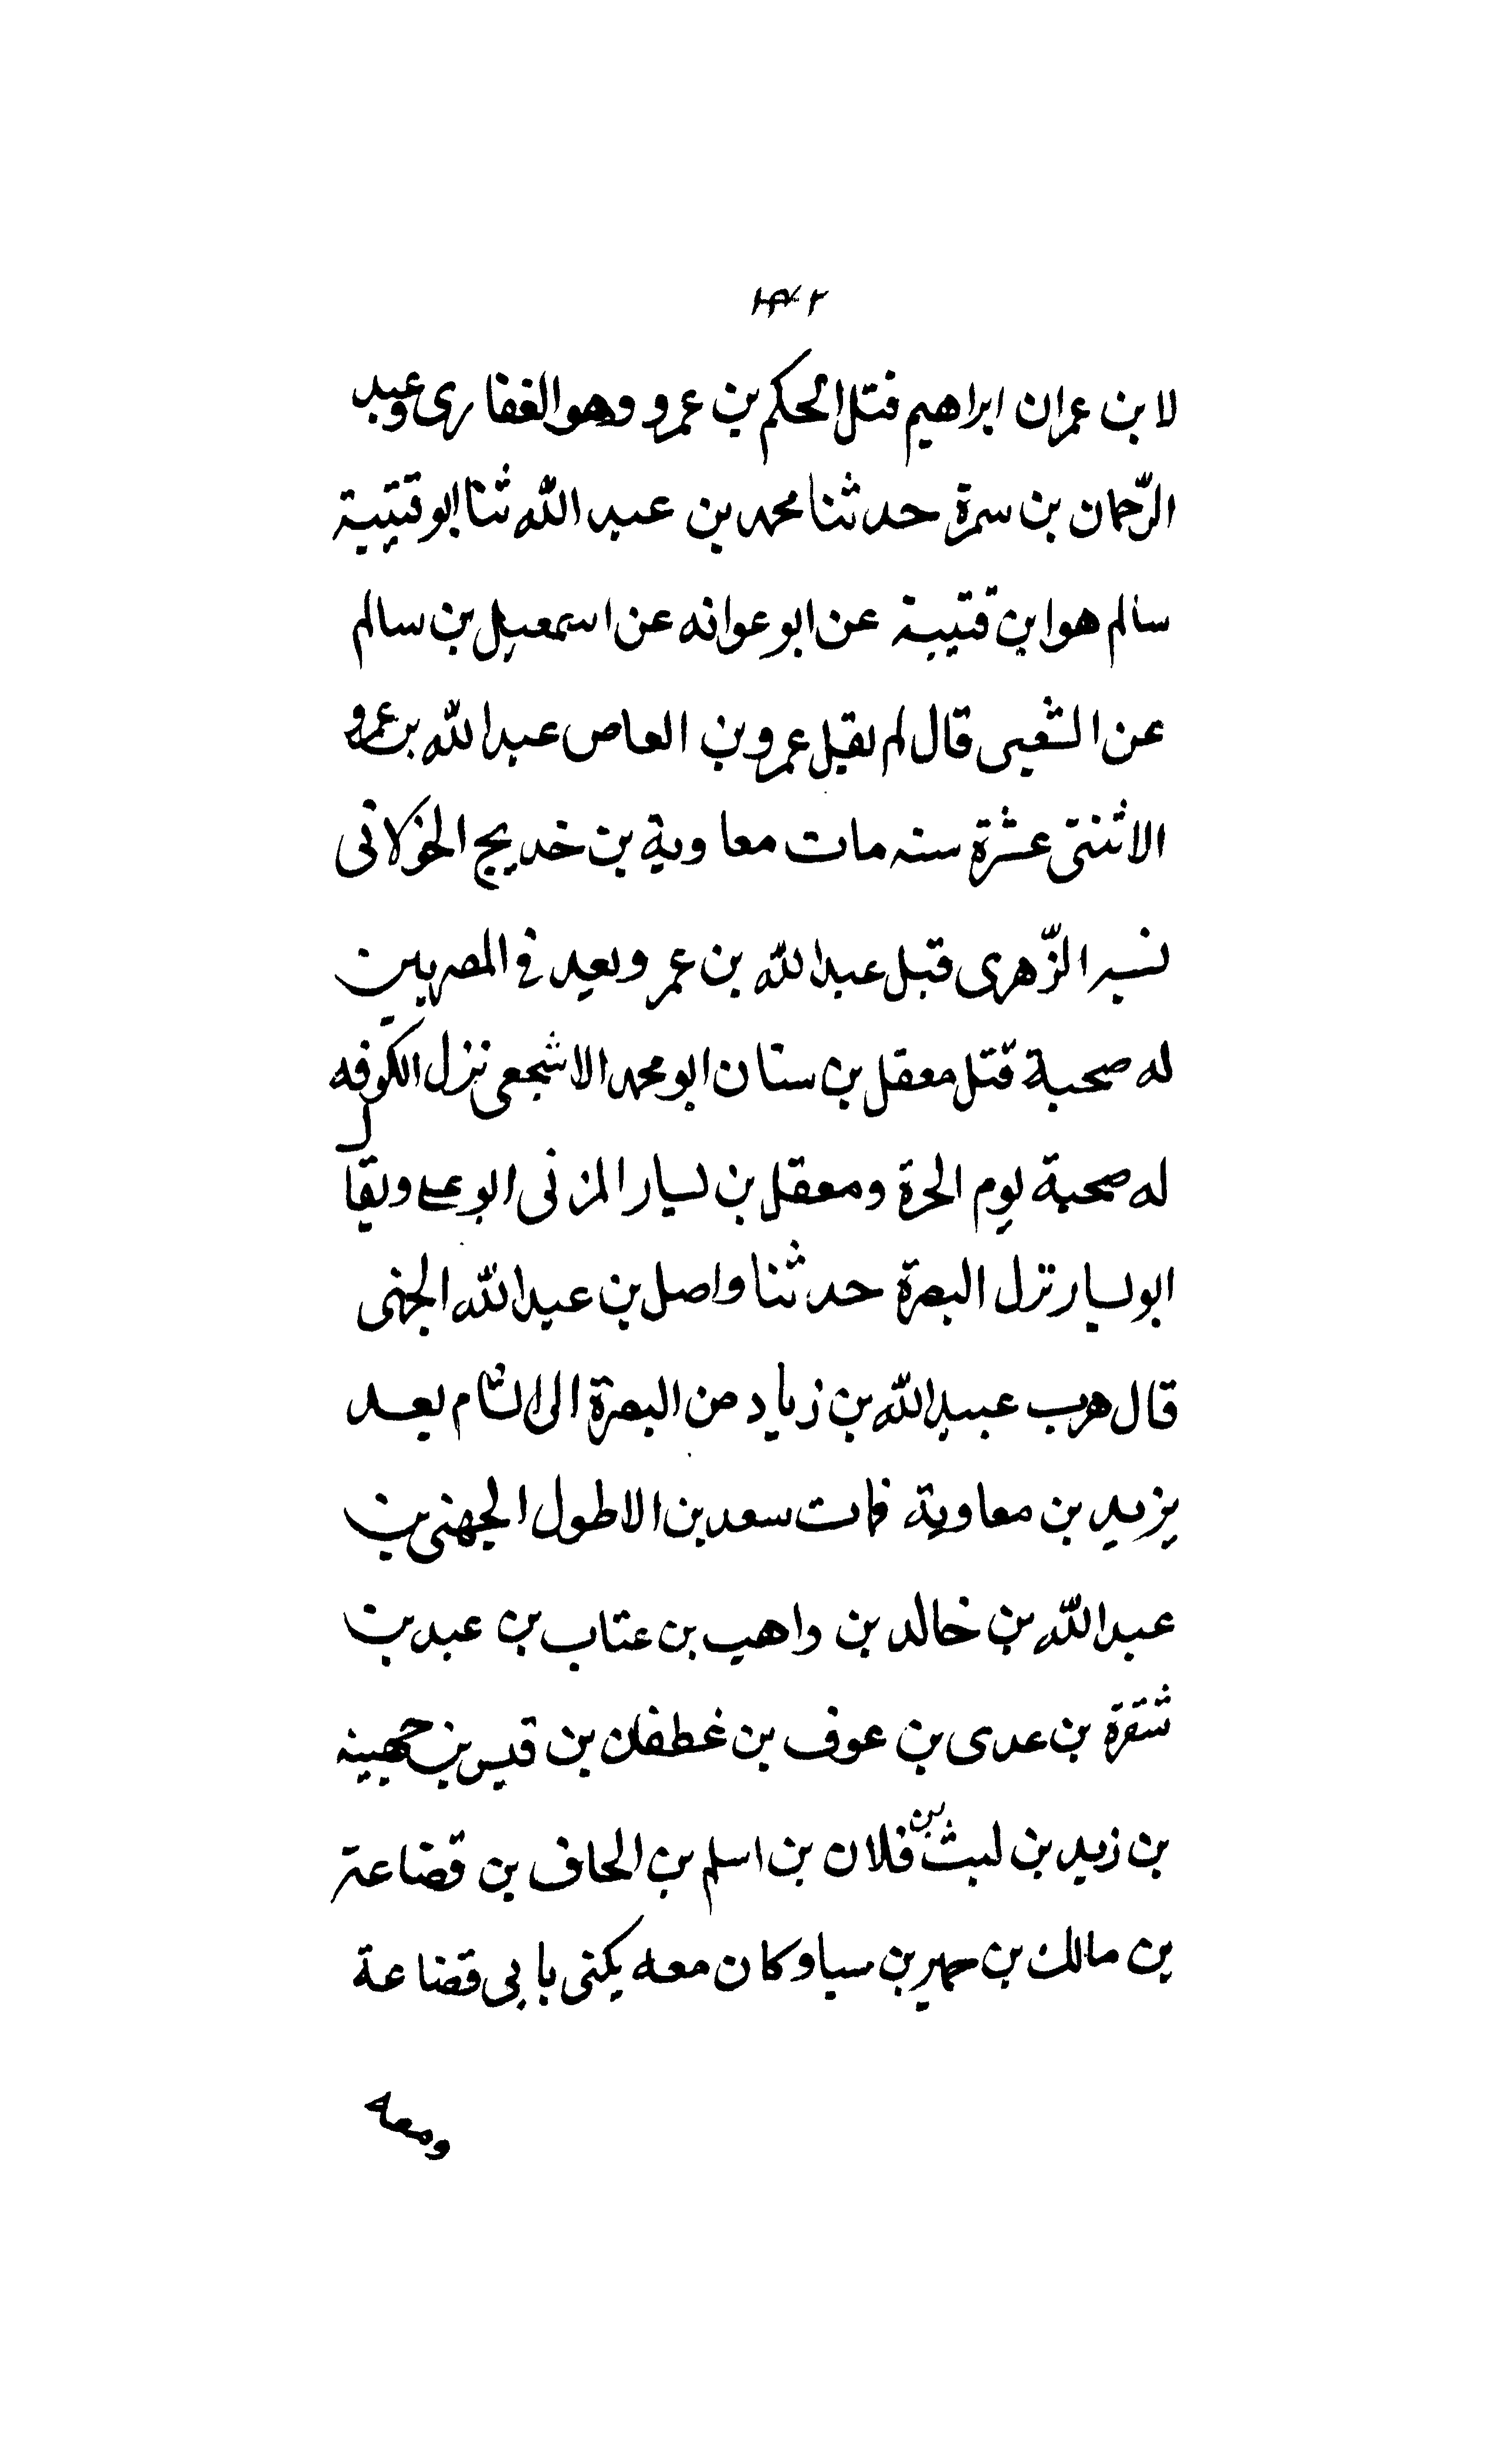 لا بن عمران ابراهيم قتل الحكم بن عمرو وهو الغفارى وعبد
الرّحمان بن سمرة حدثنا محمد بن عبد الله ثنا ابو قتيبة
سالم هو ابن قتيبة عن ابو عوانه عن اسمعيل بن سالم
عن الشعبى قال لم يقبل عمرو بن العاص عبد الله بن عمرو
الا ثنتى عشرة سنه مات معاوية بن خديج الخولانى
نسبه الزّهرى قبل عبد الله بن عمر ويعد فى المصريين
له صحبة قتل معقل بن سنان ابو محمد الاشجعى نزل الكوفه
له صحبة يوم الحرة ومعقل بن يسار المزنى ابو على ويقال
ابو يسار نزل البصرة حدثنا واصل بن عبد الله الجهنى
قال هرب عبيد الله بن زياد من البصرة الى الشام بعد
يزيد بن معاوية فمات سعد بن الاطول الجهنى بن
عبد الله بن خالد بن واهب بن عتاب بن عبد بن
شقرة بن عدى بن عوف بن غطفان بن قيس بن جهينه
بن زيد بن ليث بن فلان بن اسلم بن الحاف بن قضاعة
بن مالك بن حمير بن سبا وكان معه يكنى بابى قضاعة
ومعه